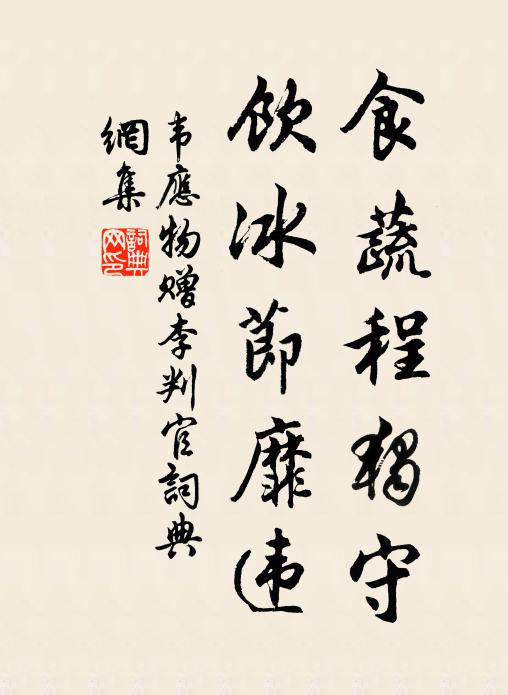 食蔬程獨守
饮冰節靡违
韦應物赠李判官詞典
網集
詞典
网印